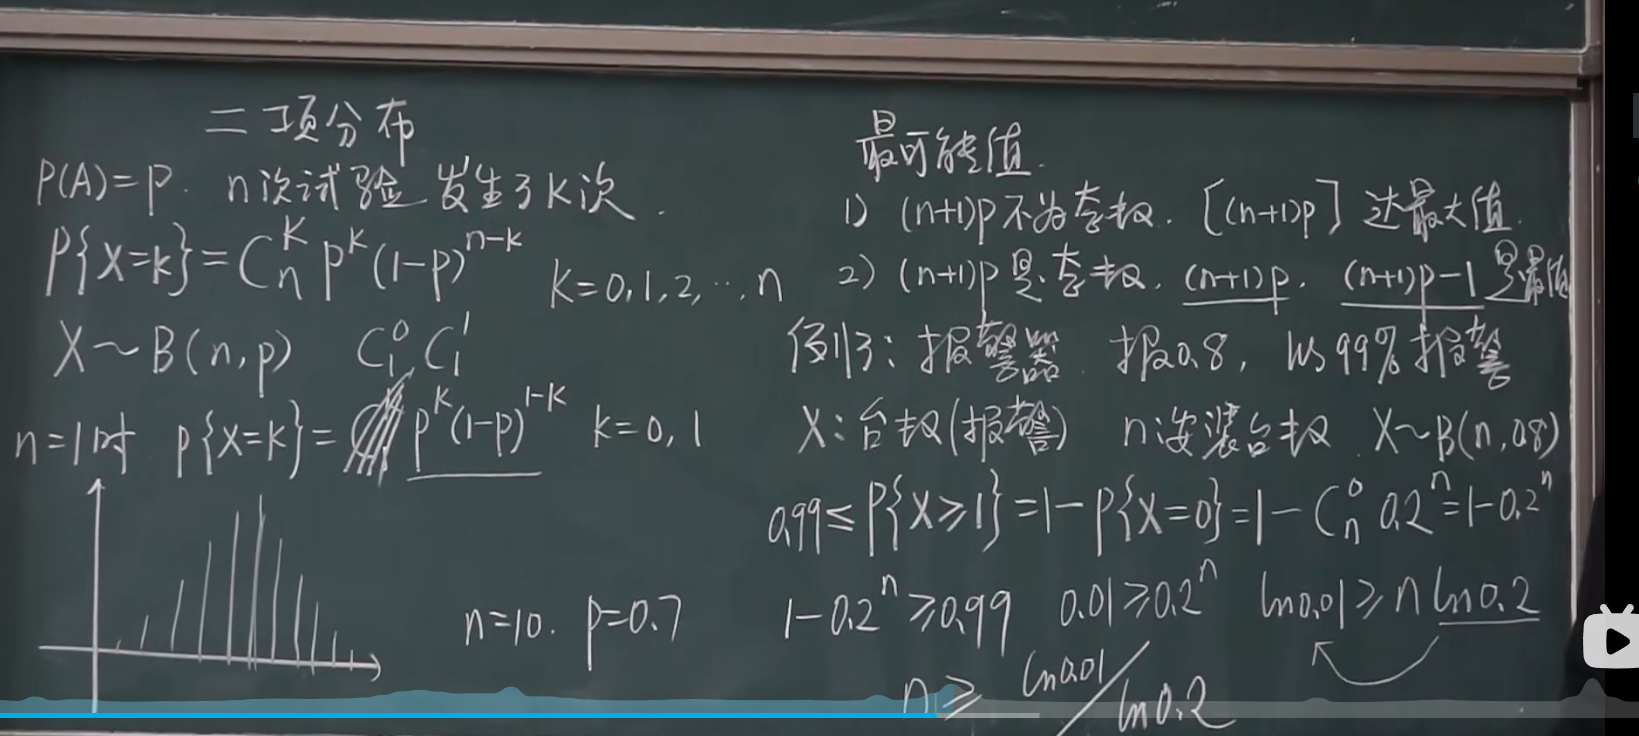 二项分布
P(A)=p. n次试验 发生了k次.
P{X=k}=C_n^k p^k (1-p)^{n-k} k=0,1,2,…,n
X~B(n,p) C_1^0 C_1^1
n=1时 P{X=k}= p^k (1-p)^{1-k} k=0,1
n=10. p=0.7
最可能值.
1) (n+1)p不为整数. [(n+1)p] 达最大值.
2) (n+1)p是整数. (n+1)p. (n+1)p-1 是最值
例3: 报警器. 报0.8, 以99%报警
X:台数(报警) n安装台数 X~B(n,0.8)
0.99≤P{X≥1}=1-P{X=0}=1-C_n^0 0.2^n=1-0.2^n
1-0.2^n≥0.99 0.01≥0.2^n ln0.01≥n ln0.2
n≥ ln0.01/ln0.2